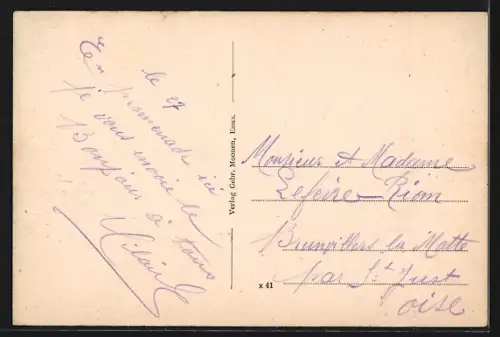 le 27
En promenade ici
je vous envoie le
Bonjour à tous
Verlag Gebr. Moonen, Essen.
Monsieur et Madame
Lefèvre-Rion
Brunvillers la Motte
par St Just
oise
x 41